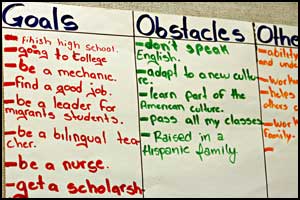 Goals
- finish high school.
- going to college
- be a mechanic.
- find a good job.
- be a leader for
migrants students.
- be a bilingual tea
cher.
- be a nurse.
- get a scholarsh
Obstacles
- don't speak
English.
- adapt to a new cultu
re.
- learn part of the
American culture.
- pass all my classes
- Raised in a
Hispanic family
Othe
- ability
and unde
- work
helps
others
- work
family.
-